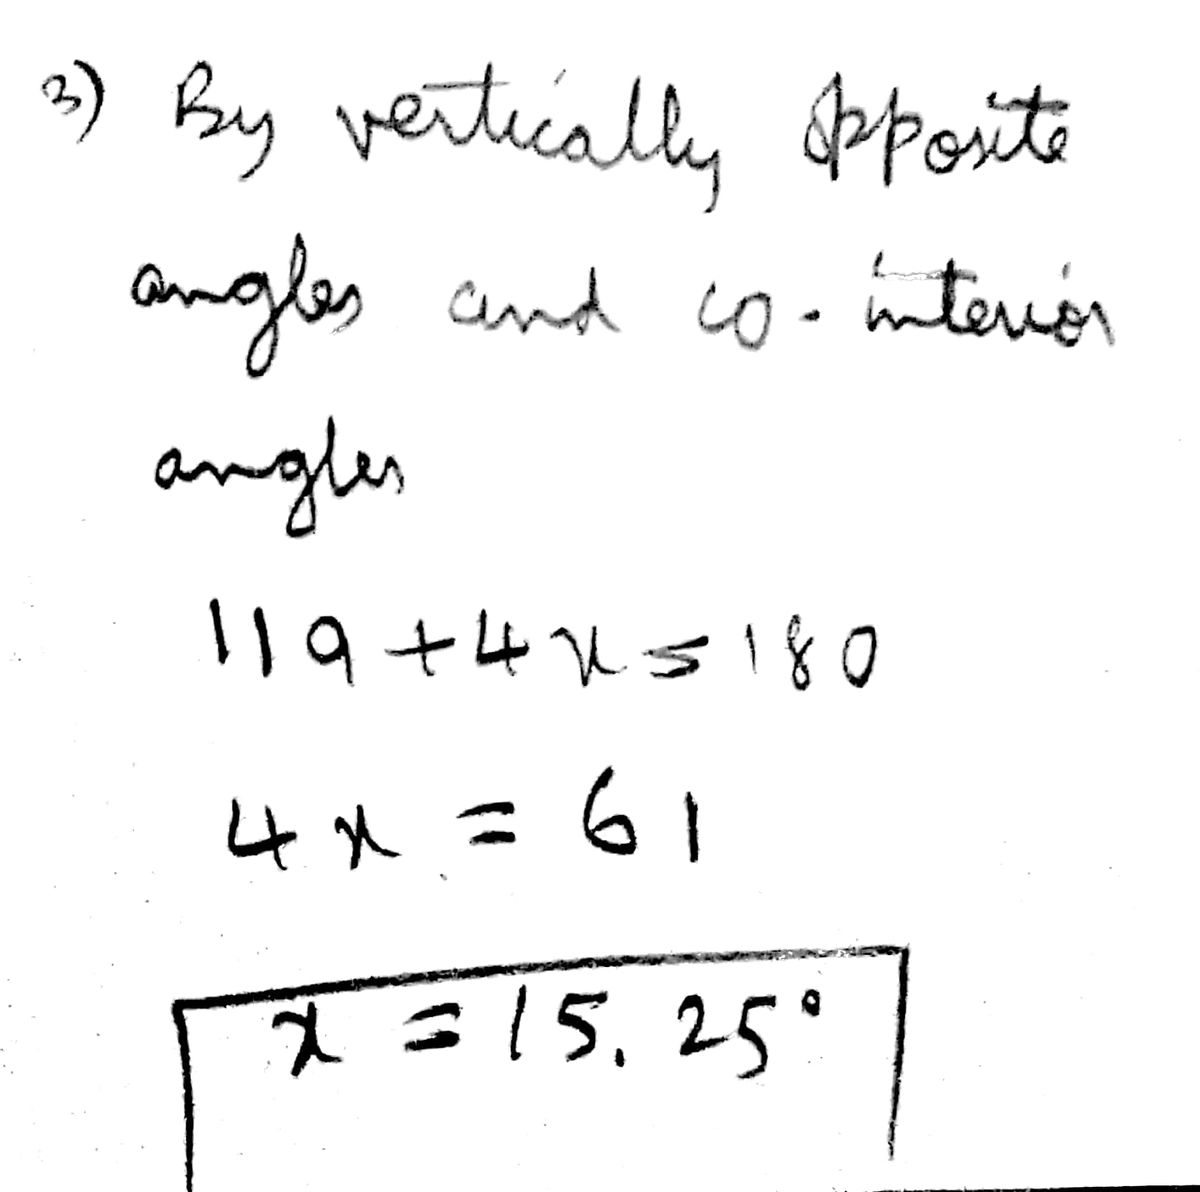 3) By vertically opposite
angles and co-interior
angles
119 + 4x = 180
4x = 61
x = 15.25°